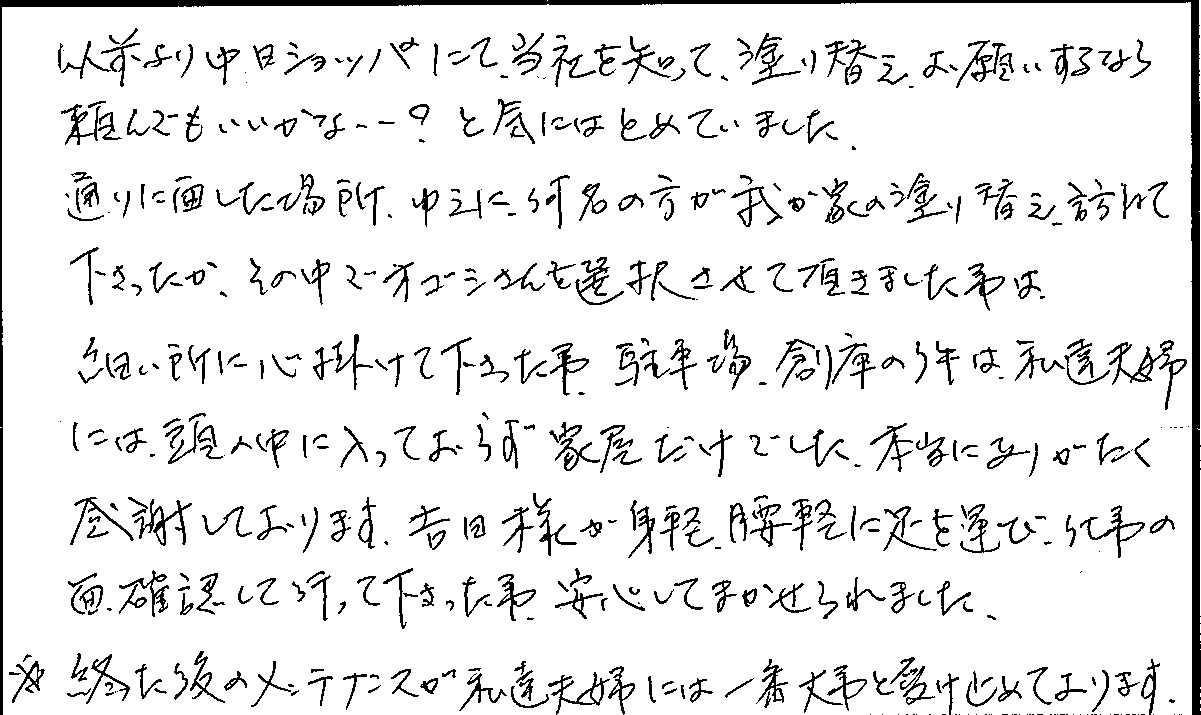 以前より中日ショッパーにて、当社を知って、塗り替え、お願いするなら
頼んでもいいかな--? と気にはとめていました、
通りに面した場所、ゆえに、何名の方が我が家の塗り替え、訪れて
下さったか、その中でオコシさんを選択させて頂きました事は、
細い所に心掛けて下さった事、駐車場、倉庫の件は、私達夫婦
には、頭の中に入っておらず家屋だけでした、本当にありがたく
感謝しております、吉田様が身軽、腰軽に足を運び、仕事の
面、確認して行って下さった事、安心してまかせられました、
※ 終った後のメンテナンスが私達夫婦には一番大事と受け止めております、